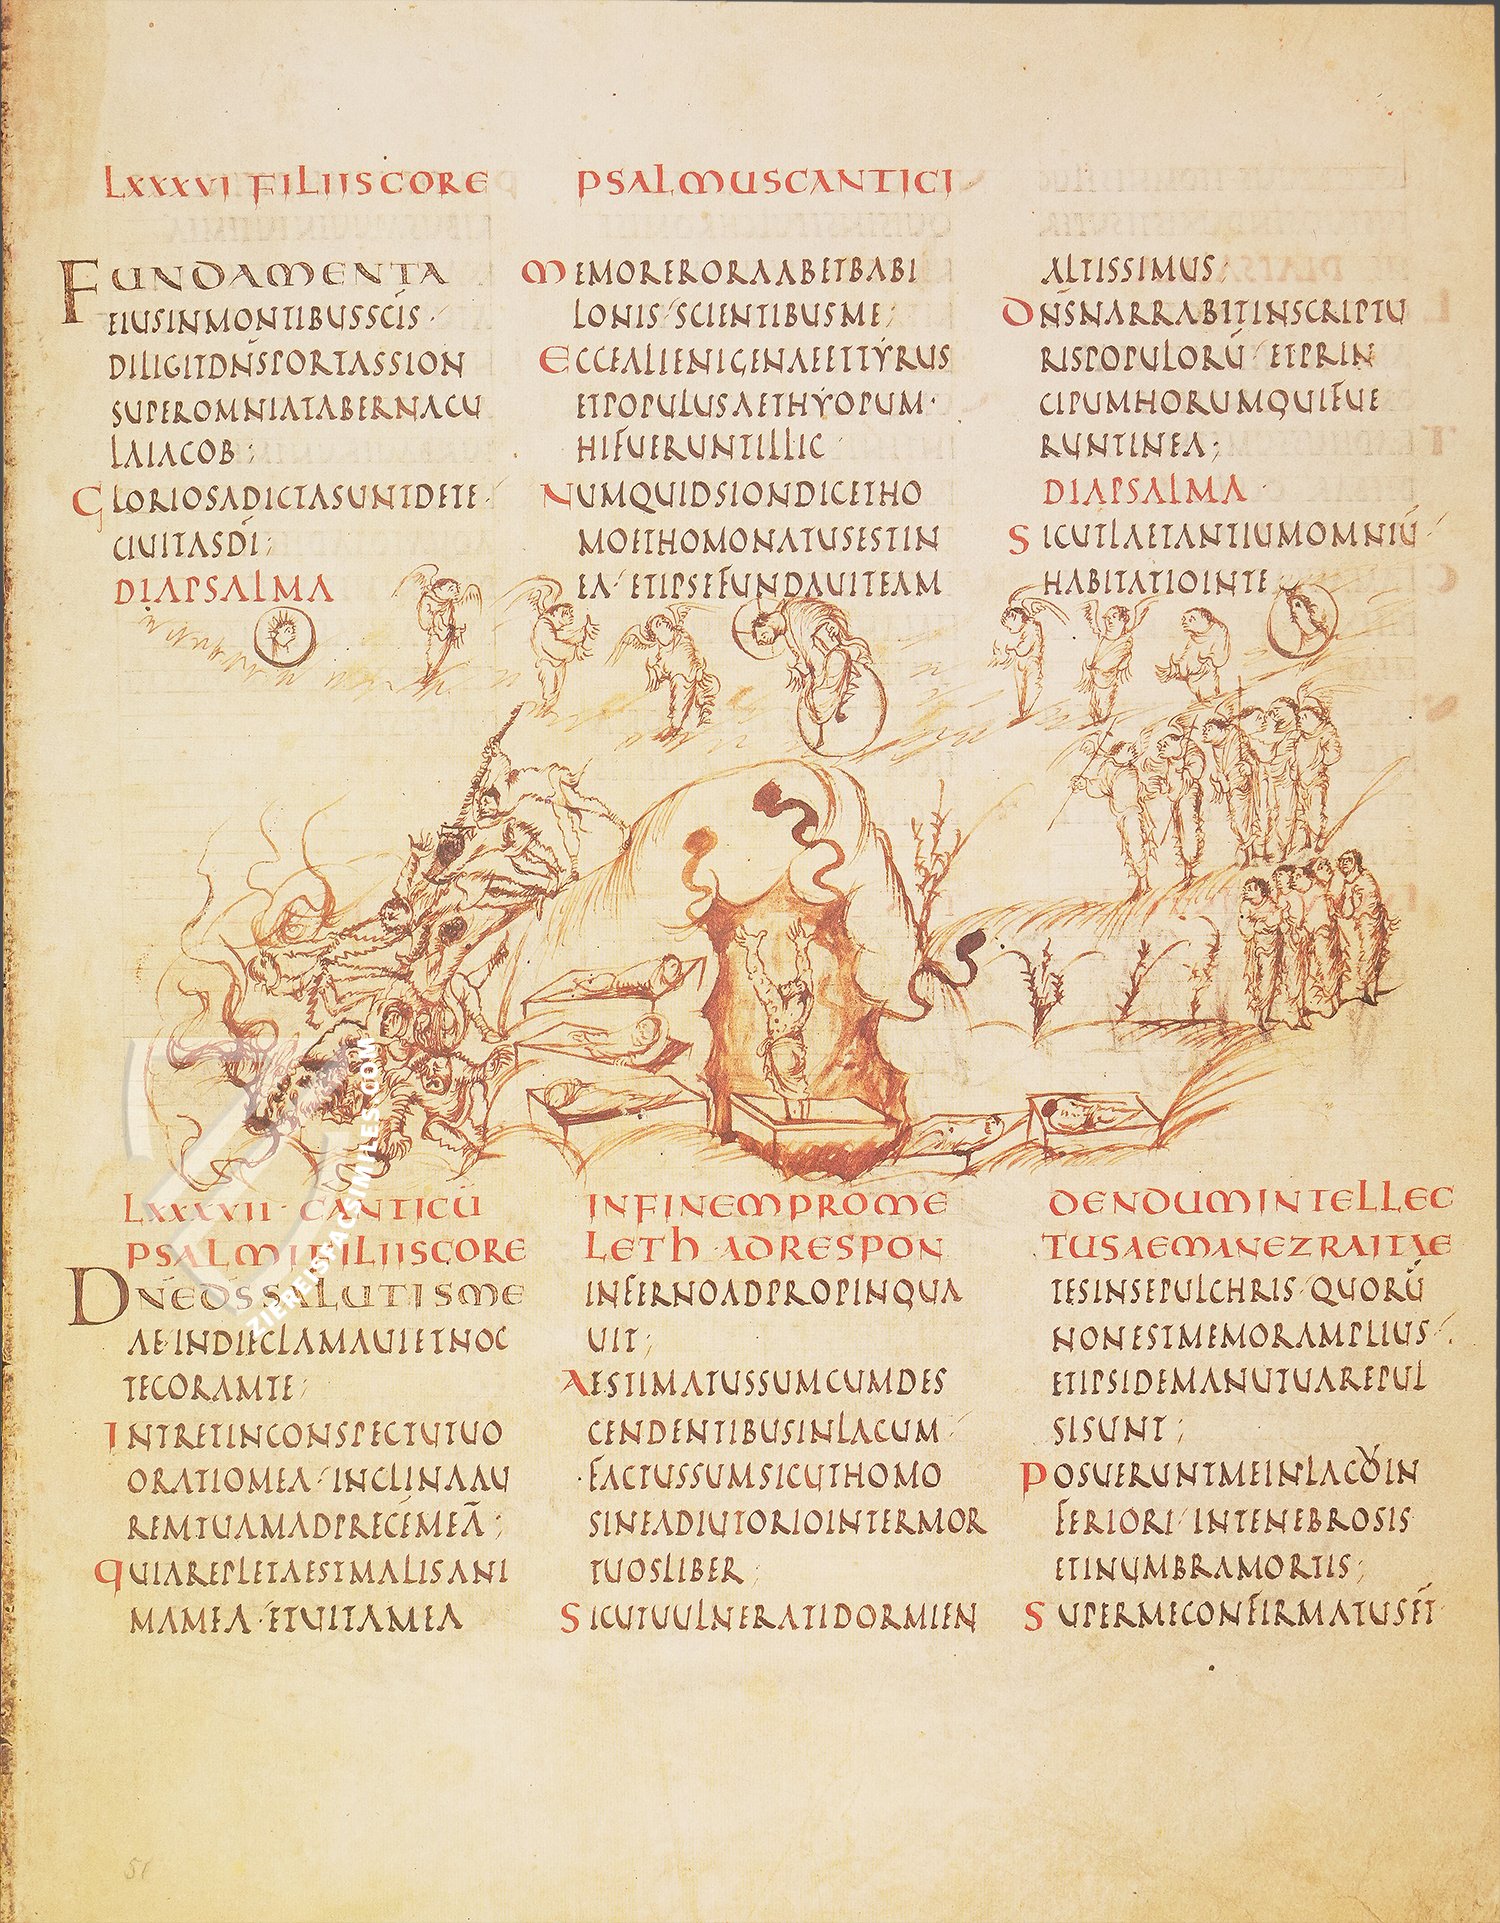 LXXXVI FILIIS CORE PSALMUS CANTICI
FUNDAMENTA
EIUSINMONTIBUSSCĪS
DILIGITDN̄SPORTASSION
SUPEROMNIATABERNACU
LAIACOB;
GLORIOSADICTASUNTDETE·
CIUITASDĪ;
DIAPSALMA
MEMORERORAABETBABI
LONIS/SCIENTIBUSME;
ECCEALIENIGENAEETTYRUS
ETPOPULUSAETHYOPUM·
HIFUERUNTILLIC
NUMQUIDSIONDICETHO
MOETHOMONATUSESTIN
EA/ETIPSEFUNDAUITEAM
ALTISSIMUS;
DN̄SNARRABITINSCRIPTU
RISPOPULORŪ/ETPRIN
CIPUMHORUMQUIFUE
RUNTINEA;
DIAPSALMA·
SICUTLAETANTIUMOMNIŪ/
HABITATIOINTE
LXXXVII·CANTICŪ
PSALMIFILIISCORE
DN̄EDS̄SALUTISME
AE·INDIECLAMAUIETNOC
TECORAMTE;
INTRETINCONSPECTUTUO
ORATIOMEA/INCLINAAU
REMTUAMADPRECEMMEĀ;
QUIAREPLETAESTMALISANI
MAMEA·ETUITAMEA
INFINEMPROME
LETH·ADRESPON
INFERNOADPROPINQUA
UIT;
AESTIMATUSSUMCUMDES
CENDENTIBUSINLACUM/
·FACTUSSUMSICUTHOMO
SINEADIUTORIOINTERMOR
TUOSLIBER;
SICUTUULNERATIDORMIEN
DENDUMINTELLEC
TUSAEMANEZRAITAE
TESINSEPULCHRIS/QUORŪ
NONESTMEMORAMPLIUS/.
ETIPSIDEMANUTUAREPUL
SISUNT;
POSUERUNTMEINLACOIN
FERIORI/INTENEBROSIS
ETINUMBRAMORTIS;
SUPERMECONFIRMATUSĒT·
51
ZIEREIS-FACSIMILES.COM